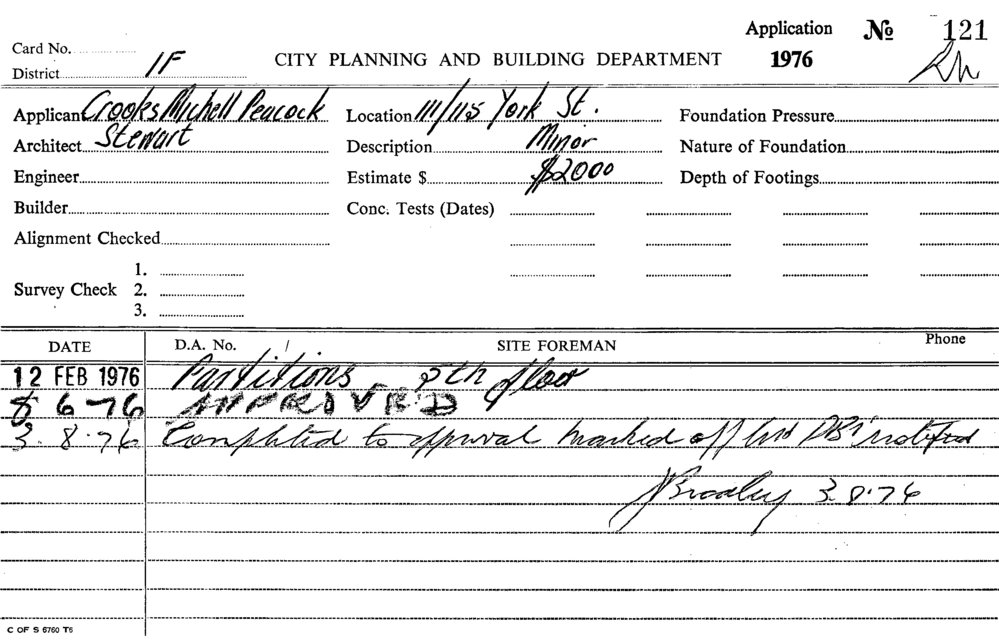 Application № 121
Card No.
District 1F CITY PLANNING AND BUILDING DEPARTMENT 1976
Applicant Crooks Michell Peacock Location 111/115 York St. Foundation Pressure
Architect Stewart Description Minor Nature of Foundation
Engineer Estimate $ $2000 Depth of Footings
Builder Conc. Tests (Dates)
Alignment Checked
1.
Survey Check 2.
3.
DATE D.A. No. / SITE FOREMAN Phone
12 FEB 1976 Partitions 5th floor
8 6-76 APPROVED
3.8.76 Completed to approval marked off notified
Bradley 3.8.76
C OF S 6760 T6